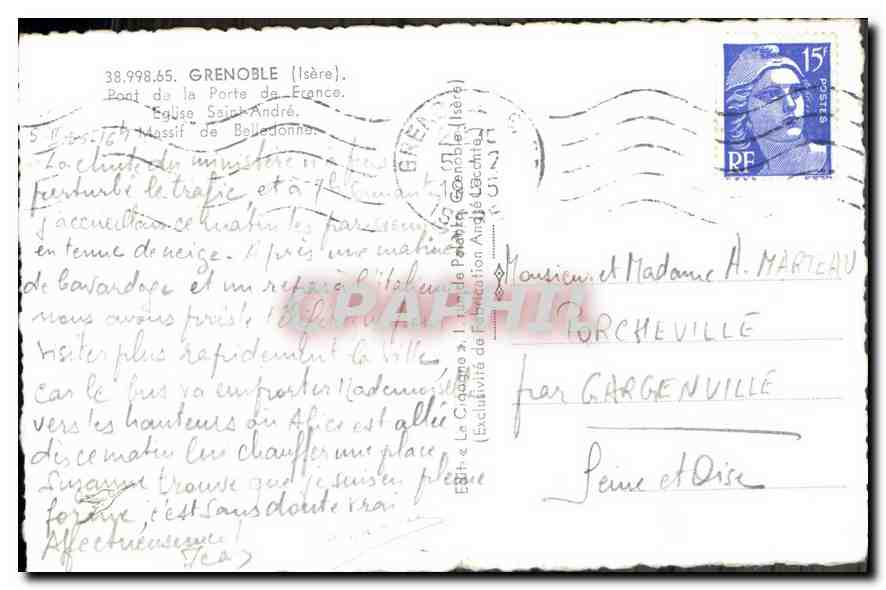 38.998.65. GRENOBLE (Isère).
Pont de la Porte de France.
Eglise Saint-André.
Massif de Belledonne.
La chute du ministère n'a pas
perturbé le trafic, et à
j'accueillais ce matin les
en tenue de neige. Après une matinée
de bavardage et un repas à l'italienne
nous avons
visiter plus rapidement la ville,
car le bus va emporter Mademoiselle
vers les hauteurs où Alice est allée
dès ce matin lui chauffer une place
Suzanne trouve que je suis en pleine
forme, c'est sans doute vrai
Affectueusement
Edit. « La Cigogne », 1, rue de Palanka, Grenoble (Isère)
(Exclusivité de Fabrication André Lecomte)
GRENOBLE
15F
POSTES
RF
Monsieur et Madame A. MARTEAU
PORCHEVILLE
par GARGENVILLE
Seine et Oise
CPAPHIL